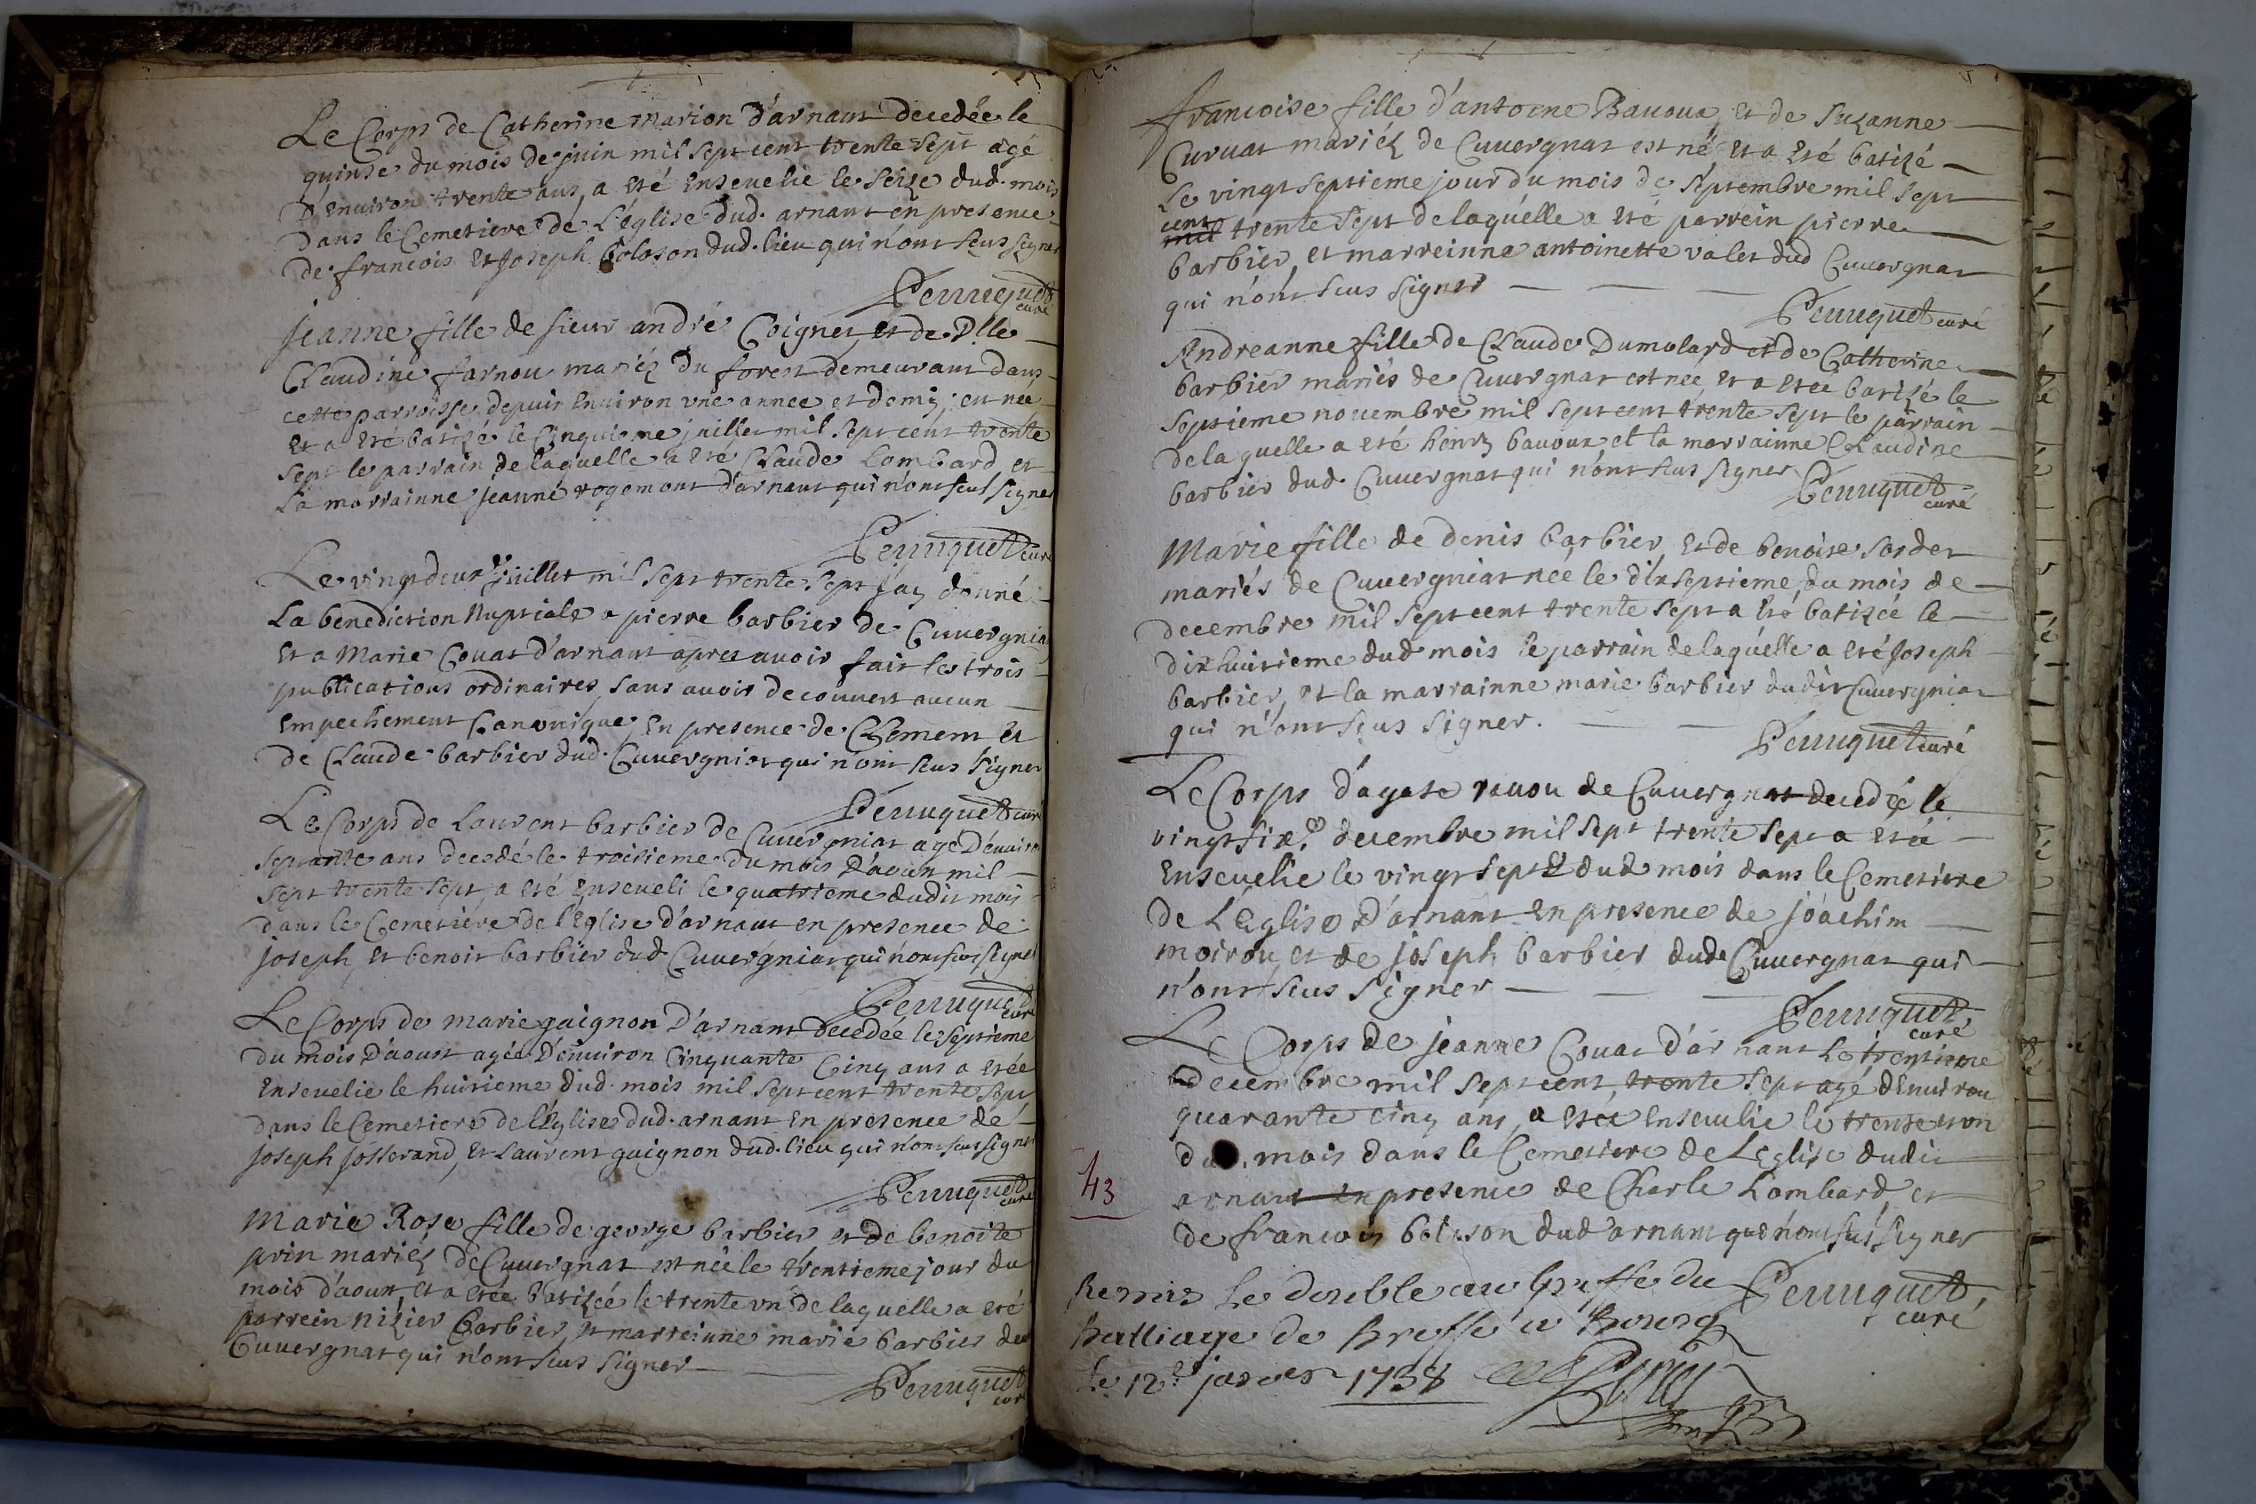 Le Corps de Catherine marion d'arnant decedée le
quinse du mois de juin mil sept cent trente sept agé
d'environ trente ans, a eté ensevelie le seize dud. mois
dans le Cemetiere de L'église dud. arnant en presence
de francois et Joseph boloson dud. lieu qui n'ont sceus signer
Perruquet
curé
jeanne fille de sieur andré Coignet et de Dlle
Claudine farnou mariéz du forest demeurant dans
cette parroisse depuis environ une annee et demy, est née
et a eté batizé le Cinquieme juillet mil sept cent trente
sept le parrain de laquelle a eté Claude Lombard et
La marrainne jeanne rogemont d'arnant qui n'ont sceus signer
Perruquet curé
Le vingt deux juillet mil sept trente sept j'ay donné
La benediction Nuptiale a pierre barbier de Cuvergniat
et a Marie Couat d'arnant apres avoir fait les trois
publications ordinaires, sans avoir decouvert aucun
empechement Canonique, en presence de Clement et
de Claude barbier dud. Cuvergniat qui n'ont sceus signer
Perruquet curé
Le Corps de Laurent barbier de Cuvergniat agé d'environ
septante ans decedé le troisieme du mois d'aoust mil
sept trente sept, a eté enseveli le quatrieme dudit mois
dans le Cemetiere de l'Eglise d'arnant en presence de
joseph et benoit barbier dud. Cuvergniat qui n'ont sceus signer
Perruquet
curé
Le Corps de marie gaignon d'arnant decedée le septieme
du mois d'aoust agée d'environ Cinquante Cinq ans a etée
ensevelie le huitieme dud. mois mil sept cent trente sept
dans le Cemetiere de l'Eglise dud. arnant en presence de
joseph josserand, et Laurent gaignon dud. lieu qui n'ont sceus signer
Perruquet
curé
Marie Rose fille de george barbier et de benoite
prin mariéz de Cuvergnat est née le trentieme jour du
mois d'aoust, et a etée batizée le trente un de laquelle a eté
parrein nizier barbier, et marreinne marie barbier dud
Cuvergnat qui n'ont sceus signer
Perruquet
curé
francoise fille d'antoine Bavoux et de Suzanne
Curvat mariéz de Cuvergnat est né et a eté batizé
Le vingt septieme jour du mois de septembre mil sept
cent trente sept de laquelle a eté parrein pierre
barbier, et marreinne antoinette valet dud Cuvergnat
qui n'ont sceus signer
Perruquet curé
Andreanne fille de Claude Dumolard et de Catherine
barbier mariés de Cuvergnat est née, et a etee batizé le
septieme novembre mil sept cent trente sept le parrain
de la quelle a eté henry bavoux et la marrainne Claudine
barbier dud. Cuvergnat qui n'ont sceus signer
Perruquet
curé
Marie fille de denis barbier et de benoise sorder
mariés de Cuvergniat née le dix septieme du mois de
decembre mil sept cent trente sept a eté batizée le
dix huitieme dud mois le parrain de laquelle a eté joseph
barbier, et la marrainne marie barbier dudit Cuvergniat
qui n'ont sceus signer.
Perruquet curé
Le Corps d'agate de Cuvergnat decedée le
vingt six.e decembre mil sept trente sept a etée
Ensevelie le vingt sept dud mois dans le Cemetiere
de L'Eglise d'arnant en presence de joachim
moirou, et de joseph barbier dud Cuvergnat qui
n'ont sceus signer
Perruquet
curé
Le Corps de jeanne Couat d'arnant le trentieme
decembre mil sept cent, trente sept agé d'environ
quarante cinq ans, a etee ensevelie le trente un
dud. mois dans le Cemetiere de L'eglise dudit
arnant en presence de Charle Lombard, et
de francois boloson dud arnant qui n'ont sceus signer
43
Perruquet
curé
Remis le double au greffe du
Balliage de Bresse a Bourg
le 12e janvier 1738